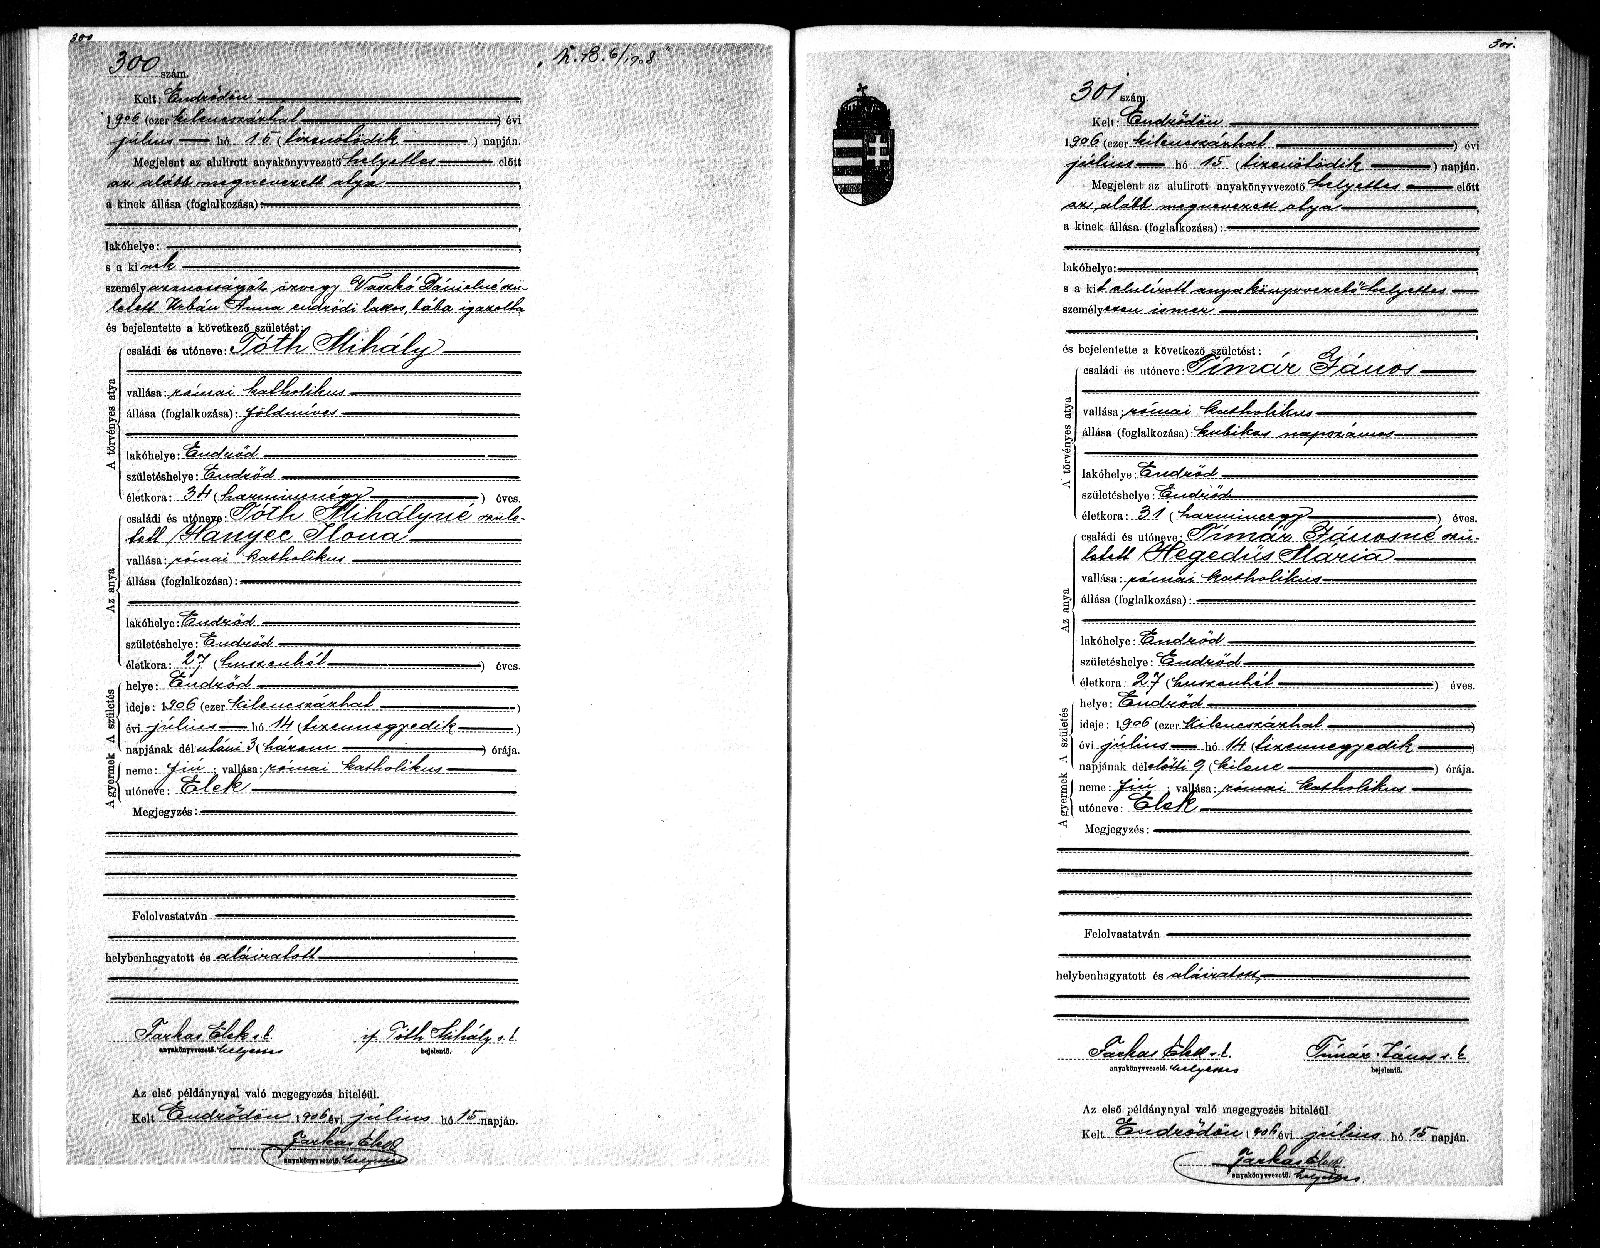 300
300 szám.
Kelt: Endrődön
1906 (ezer kilencszázhat) évi
július hó 15 (tizenötödik) napján.
Megjelent az alulirott anyakönyvvezető helyettes előtt
az alább megnevezett atya,
a kinek állása (foglalkozása):
lakóhelye:
s a kinek
személyazonosságát özvegy Vaskó Dánielné szü-
letett Urbán Anna endrődi lakos, bába igazolta
és bejelentette a következő születést:
A törvényes atya
családi és utóneve: Tóth Mihály
vallása: római katholikus
állása (foglalkozása): földmíves
lakóhelye: Endrőd
születéshelye: Endrőd
életkora: 34 (harmincnégy) éves.
Az anya
családi és utóneve: Tóth Mihályné szüle-
tett Hanyec Ilona
vallása: római katholikus
állása (foglalkozása):
lakóhelye: Endrőd
születéshelye: Endrőd
életkora: 27 (huszonhét) éves.
A születés
helye: Endrőd
ideje: 1906 (ezer kilencszázhat)
évi július hó 14 (tizennegyedik)
napjának délutáni 3 (három) órája.
A gyermek
neme: fiú; vallása: római katholikus
utóneve: Elek
Megjegyzés:
Felolvastatván
helybenhagyatott és aláiratott
Farkas Elek s. k. if. Tóth Mihály s. k.
anyakönyvvezető. helyettes bejelentő.
Az első példánynyal való megegyezés hiteléül.
Kelt Endrődön 1906 évi július hó 15 napján.
Farkas Elek
anyakönyvvezető. helyettes
301.
301 szám.
Kelt: Endrődön
1906 (ezer kilencszázhat) évi
július hó 15 (tizenötödik) napján.
Megjelent az alulirott anyakönyvvezető helyettes előtt
az alább megnevezett atya,
a kinek állása (foglalkozása):
lakóhelye:
s a kit alulirott anyakönyvvezető helyettes
személyesen ismer
és bejelentette a következő születést:
A törvényes atya
családi és utóneve: Tímár János
vallása: római katholikus
állása (foglalkozása): kubikos napszámos
lakóhelye: Endrőd
születéshelye: Endrőd
életkora: 31 (harmincegy) éves.
Az anya
családi és utóneve: Tímár Jánosné szü-
letett Hegedüs Mária
vallása: római katholikus
állása (foglalkozása):
lakóhelye: Endrőd
születéshelye: Endrőd
életkora: 27 (huszonhét) éves.
A születés
helye: Endrőd
ideje: 1906 (ezer kilencszázhat)
évi július hó 14 (tizennegyedik)
napjának délelőtti 9 (kilenc) órája.
A gyermek
neme: fiú; vallása: római katholikus
utóneve: Elek
Megjegyzés:
Felolvastatván
helybenhagyatott és aláiratott,
Farkas Elek s. k. Tímár János s. k.
anyakönyvvezető. helyettes bejelentő.
Az első példánynyal való megegyezés hiteléül.
Kelt Endrődön 1906 évi július hó 15 napján.
Farkas Elek
anyakönyvvezető. helyettes.